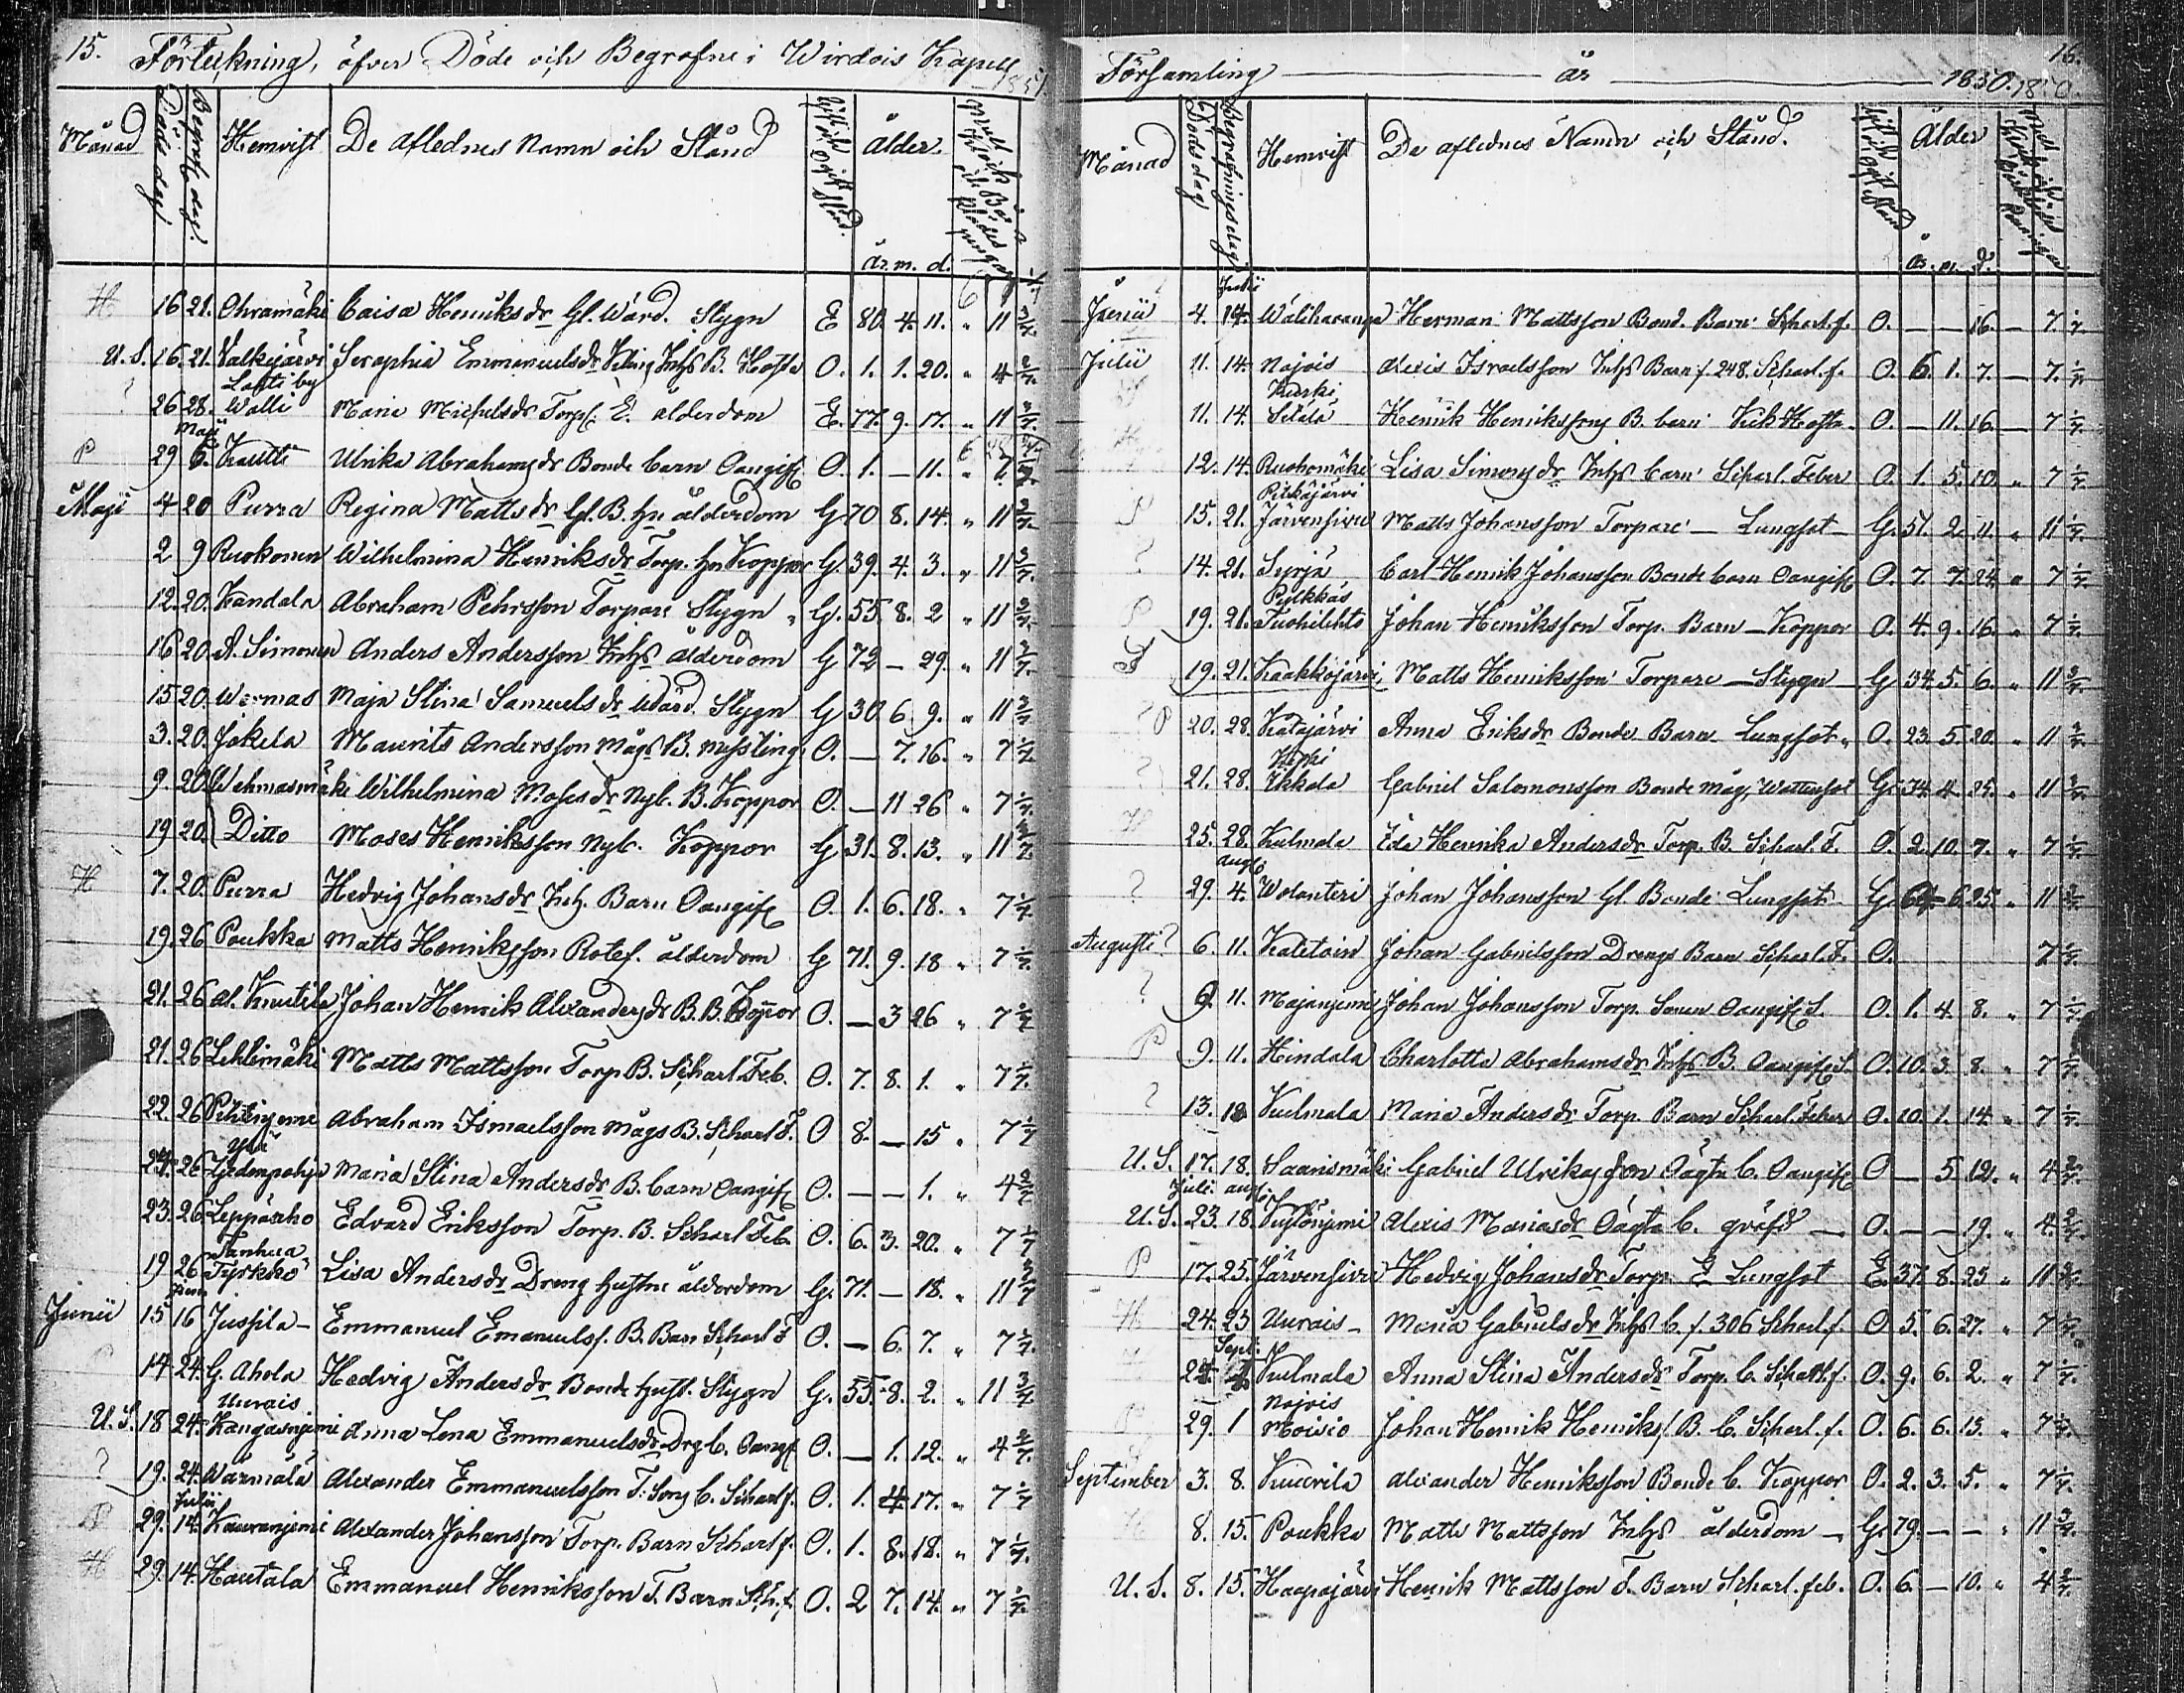 15. Förteckning, öfver Döde och Begrafne i Wirdois Kapell
Månad Döds dag Begrafn. dag. Hemvist De Aflednes Namn och Stånd Gift och Ogift Stånd. ålder.
år. m. d.
H 16 21. Ohramäki Caisa Henriksdr Gl. Wärd. Stygn E 80. 4. 11. " 11 3/7.
U. S. 16. 21. Valkejärvi Seraphia Emmanuelsdr Inhs B. Hosta O. 1. 1. 20. " 4 2/7.
? 26 28. Lahti by Walli Maria Michelsdr Torp. E. ålderdom E. 77. 9. 17. " 11 3/7.
P 29 Maji 5. Krautti Ulrika Abrahamsdr Bonde barn Oangif O. 1. — 11. " 7
Maji 4 20 Purra Regina Mattsdr Gl. B. hu ålderdom G 70 8. 14. " 11 3/7.
2 9 Ruokonen Wilhelmina Henriksdr Torp. hu Koppor G. 39. 4. 3. " 11 3/7.
12. 20. Kandala Abraham Pehrsson Torpare Stygn " G. 55. 8. 2 " 11 3/7.
16 20. A. Simonen Anders Andersson Inhs ålderdom G 72 — 29. " 11 3/7.
15 20. Wermas Maja Stina Samuelsdr Wärd. Stygn G 30 6. 9. " 11 3/7
3. 20. Jokela Maurits Andersson Mågs B. Messling O. — 7. 16. " 7 1/7.
9. 20. Wehmasmäki Wilhelmina Mosesdr Nyb. B. Koppor O. — 11 26 " 7 1/7.
19 20. Ditto Moses Henriksson Nyb. Koppor G 31. 8. 13. " 11 3/7.
H 7. 20. Purra Hedvig Johansdr Inh. Barn Oangif O. 1. 6. 18. " 7 1/7
19. 26 Poukka Matts Henriksson Rotef. ålderdom G 71. 9. 18 " 7 1/7.
21. 26 Al. Knutila Johan Henrik Alexandersdr B. B. Koppor O. — 3 26 " 7 1/7
21. 26 Lehtimäki Matts Mattsson Torp B. Scharl. Feb. O. 7. 8. 1. " 7 1/7.
22. 26 Abraham Ismaelsson Mågs B. Scharl F. O 8. — 15 " 7 1/7
24. 26 Ylä Maria Stina Andersdr B. barn Oangif O. — — 1. " 4 2/7
23. 26 Leppäaho Edvard Eriksson Torp. B. Scharl Feb. O. 6. 3. 20. " 7 1/7
19 26 Tanhua Tyrkkö Lisa Andersdr Dreng hustru ålderdom G. 71. — 18. " 11 3/7
Junii 15 Juni 16 Jussila — Emmanuel Emanuelss. B. Barn Scharl F O. — 6. 7. " 7 1/7.
14. 24. G. Ahola Hedvig Andersdr Bonde hust. Stygn G. 55. 8. 2. " 11 3/7
U. S. 18 24. Uurais Kangasniemi Anna Lena Emmanuelsdr Drg b. Oangf O. — 1. 12. " 4 2/7.
? 19. 24. Wärmälä Alexander Emmanuelsson T. Sons b. Scharl f. O. 1. 4. 17. " 7 1/7
P 29. Julii 14. Kauraniemi Alexander Johansson Torp. Barn Scharl f. O. 1. 8. 18. " 7 1/7.
H 29. 14. Hautala Emmanuel Henriksson T. Barn Sch. f. O. 2 7. 14. " 7 1/7.
16.
Församling — år — 1850. 1850.
Månad Döds dag Begrafnings dag Hemvist De aflednes Namn och Stånd. Gift och Ogift Stånd Ålder
år. m. d.
Junii 4. Julii 14. Wäliharanga Herman Mattsson Bond. Barn Scharl. f. O. — — 16. — 7 1/7.
Julii 11. 14. Najois Alexis Israelsson Inhs Barn f. 248. Scharl. f. O. 6. 1. 7. — 7. 1/7
11. 14. Kurki Setälä Henrik Henrikssons B. barn Kik Hosta O. — 11. 16. — 7 1/7.
12. 14. Ruohomäki Lisa Simonsdr Inhs barn Scharl. Feber O. 1. 5. 10. " 7 1/7.
P 15. 21. Pitkäjärvi Järvensivu Matts Johansson Torpare — Lungsot — G. 51. 2. 11. " 11 1/7.
? 14. 21. Syrjä Carl Henrik Johansson Bonde barn Oangif O. 7. 7. 24. " 7 1/7.
P 19. 21. Pulkkas Tuohilehto Johan Henriksson Torp. Barn — Koppor O. 4. 9. 16. " 7 1/7.
19. 21. Kaakkojärvi Matts Henriksson Torpare — Stygn — G 34. 5. 6. " 11 3/7.
P 20. 28. Katajärvi Anna Eriksdr Bonde Barn Lungsot " O. 23. 5. 20. " 11 3/7.
21. 28. Ikkala Gabriel Salomonsson Bonde måg, Wattusot G. 34. 4. 25. " 11 3/7.
H 25. 28. Kulmala Ida Henrika Andersdr Torp. B. Scharl. F. O. 2. 10. 7. " 7 1/7.
? 29. Aug. 4. Wolanteri Johan Johansson Gl. Bonde Lungsot G 64 6. 25. " 11 3/7.
Augusti ? 6. 11. Katetoin Johan Gabrielsson Drengs Barn Scharl. F. O. 7 1/7.
? 9. 11. Majaniemi Johan Johansson Torp. Sonen Oangif S. O. 1. 4. 8. " 7 1/7.
P 9. 11. Hindala Charlotta Abrahamsdr Inhs B. Oangif S. O. 10. 3. 8. " 7 1/7.
? 13. 18 Kulmala Maria Andersdr Torp. Barn Scharl. Feber O. 10. 1. 14. " 7 1/7.
U. S. 17. 18. Saarismäki Gabriel Ulrikas son Oägta b. Oangif O — 5 12. " 4 2/7.
U. S. Juli. 23. aug. 18. Alexis Mariasdr Oägta b. qväfd — O. — — 19. " 4 2/7.
P 17. 25. Järvensivu Hedvig Johansdr Torp. E Lungsot E. 37. 8. 23 " 11 3/7
H. 24. 25 Uurais — Maria Gabrielsdr Inhs b. f. 306 Scharl. f. O 5. 6. 27. " 7 1/7.
24. Sept. 1 Kulmala Anna Stina Andersdr Torp. b. Scharl. f. O. 9. 6. 2. " 7 1/7.
P 29. 1 Najois Moisio Johan Henrik Henrikss. B. b. Scharl. f. O. 6. 6. 13. " 7 1/7.
September 3. 8. Kuurila Alexander Henriksson Bonde b. Koppor O. 2. 3. 5. " 7 1/7.
8. 15. Poukka Matts Mattsson Inhs ålderdom — G. 79. — — " 11 3/7.
U. S. 8. 15. Haapajärvi Henrik Mattsson T. Barn Scharl. feb. O. 6. — 10. " 4 2/7.